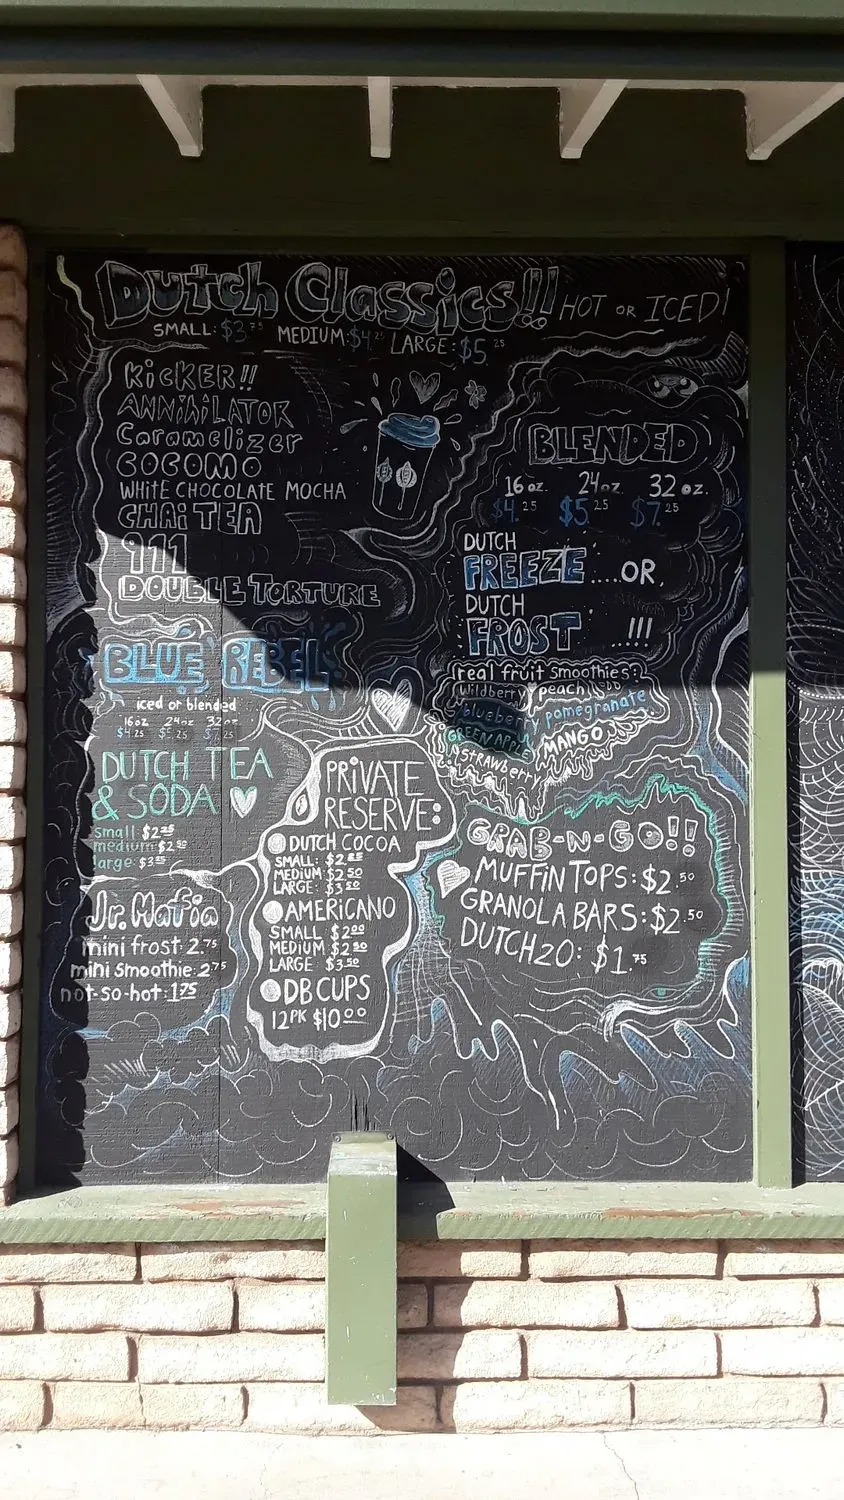 Dutch Classics!! HOT or ICED!
SMALL: $3.75 MEDIUM: $4.25 LARGE: $5.25
KiCKER!!
ANNihiLATOR
Caramelizer
COCOMO
WHITE CHOCOLATE MOCHA
CHAi TEA
911
DOUBLE TORTURE
BLUE REBEL
iced or blended
16oz 24oz 32oz
$4.25 $5.25 $7.25
DUTCH TEA
& SODA
small: $2.25
medium: $2.50
large: $3.25
Jr. Mafia
mini frost: 2.75
mini smoothie: 2.75
not-so-hot: 1.75
PRiVATE
RESERVE:
DUTCH COCOA
SMALL: $2
MEDIUM $2.50
LARGE: $3.50
AMERiCANO
SMALL $2.00
MEDIUM $2.50
LARGE $3.50
DB CUPS
12PK $10.00
BLENDED
16oz. 24oz. 32oz.
$4.25 $5.25 $7.25
DUTCH
FREEZE ....OR,
DUTCH
FROST ...!!!
real fruit smoothies:
wildberry peach
blueberry pomegranate
GREEN APPLE MANGO
STRAWBERRY
GRAB-N-GO!!
MUFFiN TOPS: $2.50
GRANOLA BARS: $2.50
DUTCH2O: $1.75